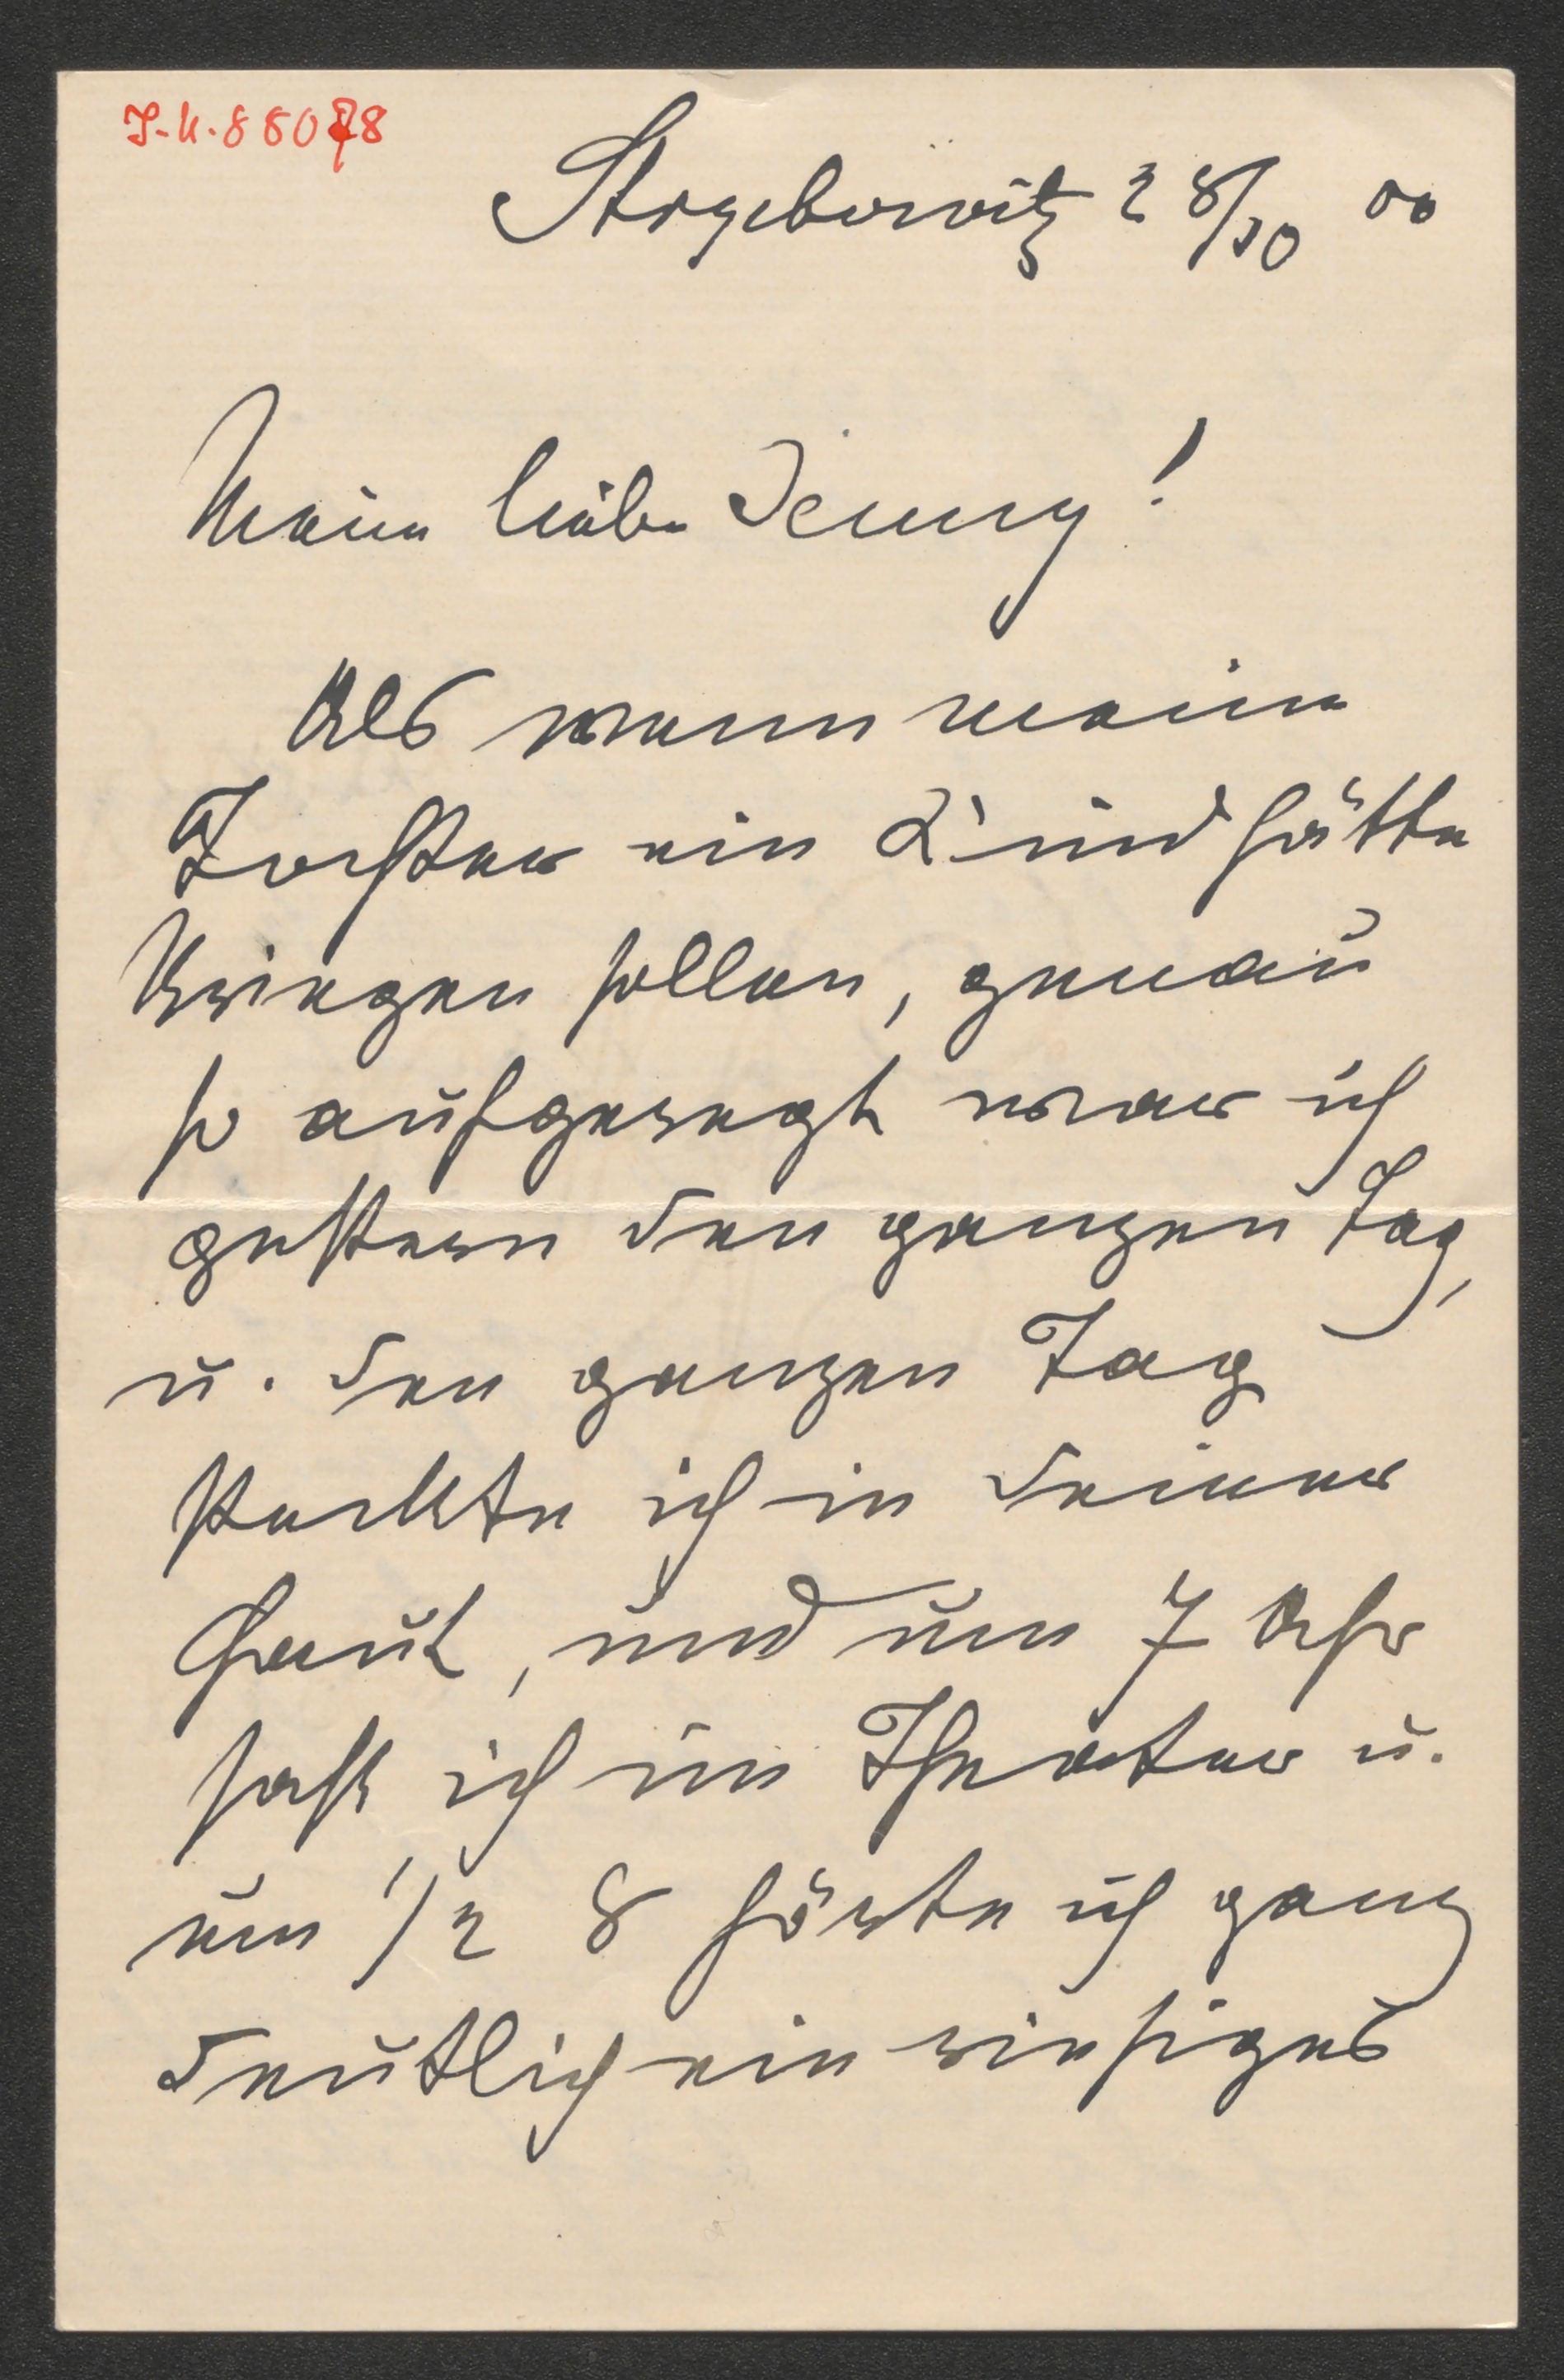 Strzebowitz 28/10 00
Meine liebe Jenny!
Als wenn meine
Tochter ein Kind hätte
kriegen sollen, genau
so aufgeregt war ich
gestern den ganzen Tag,
u. den ganzen Tag
steckte ich in Deiner
Haut, und um 7 Uhr
saß ich im Theater u.
um 1/2 8 hörte ich ganz
deutlich ein riesiges